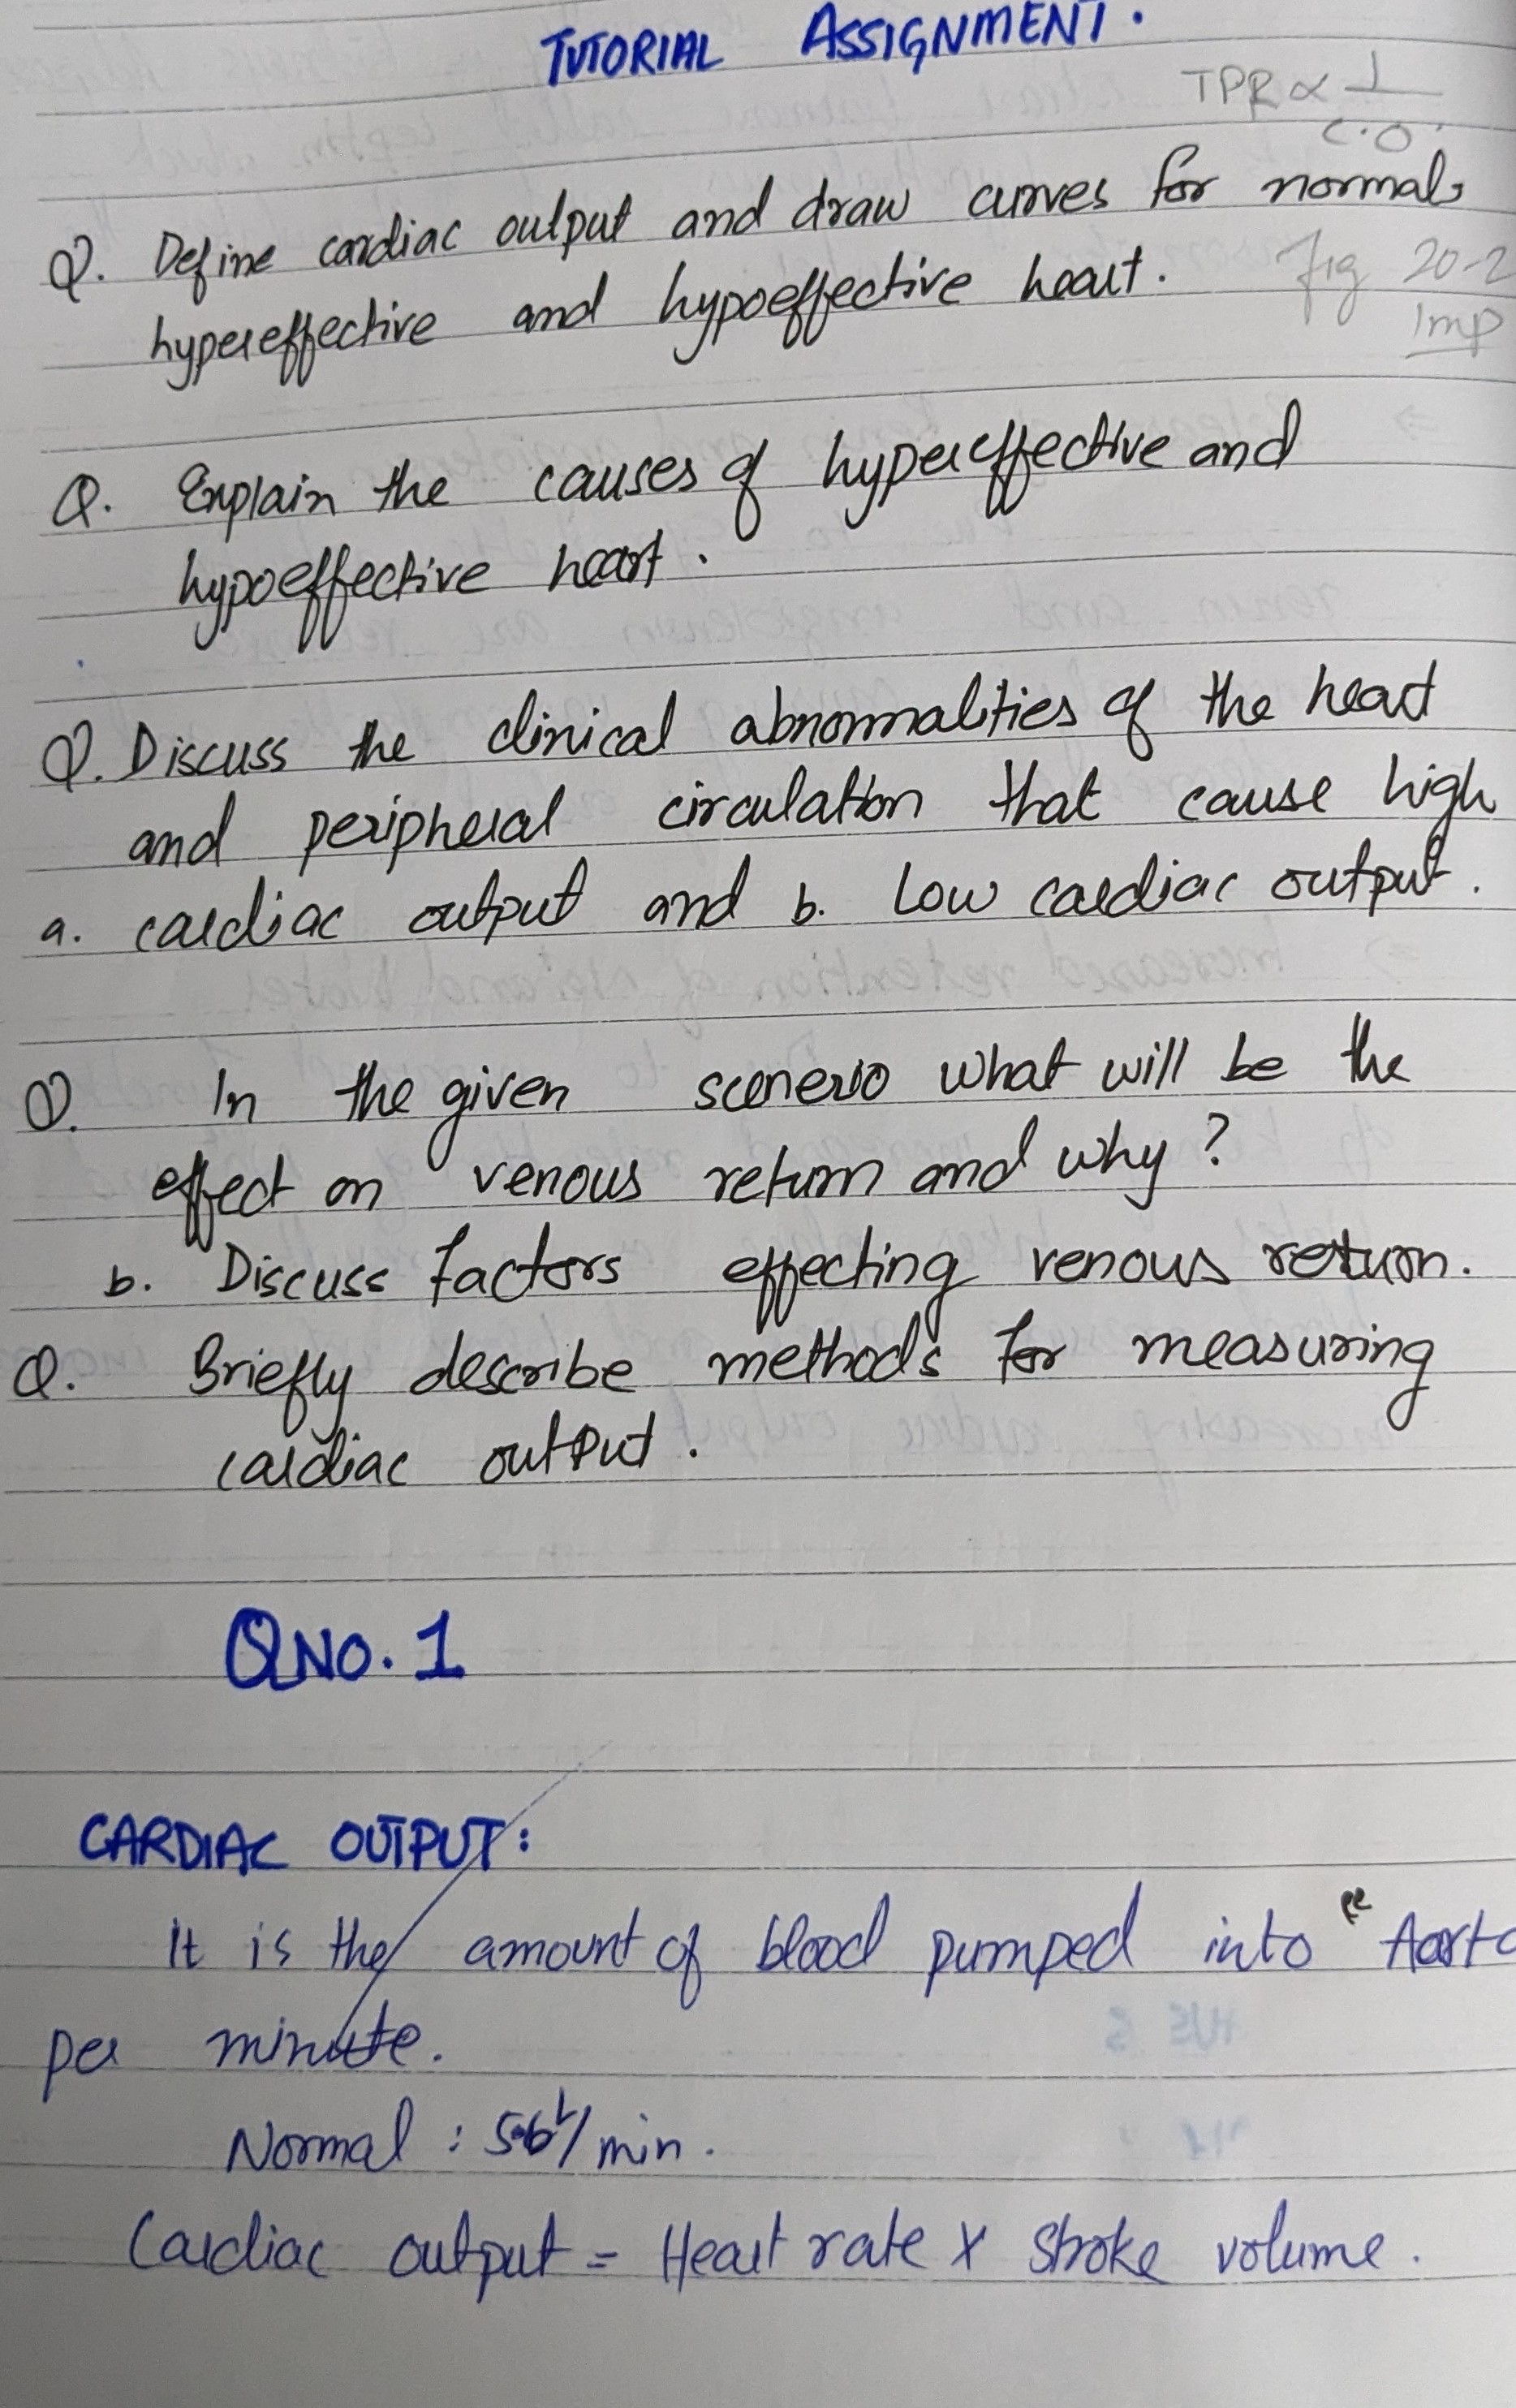 TUTORIAL ASSIGNMENT.
TPR ∝ 1
C.O.
Q. Define cardiac output and draw curves for normal,
hypereffective and hypoeffective heart.
fig 20-2
Imp
Q. Explain the causes of hypereffective and
hypoeffective heart.
Q. Discuss the clinical abnormalities of the heart
and peripheral circulation that cause high
a. cardiac output and b. Low cardiac output.
Q. In the given scenerio what will be the
effect on venous return and why?
b. Discuss factors effecting venous return.
Q. Briefly describe methods for measuring
cardiac output.
QNO. 1
CARDIAC OUTPUT:
It is the amount of blood pumped into Aorta
per minute.
Normal : 5-6 L/min.
Cardiac output = Heart rate x stroke volume.